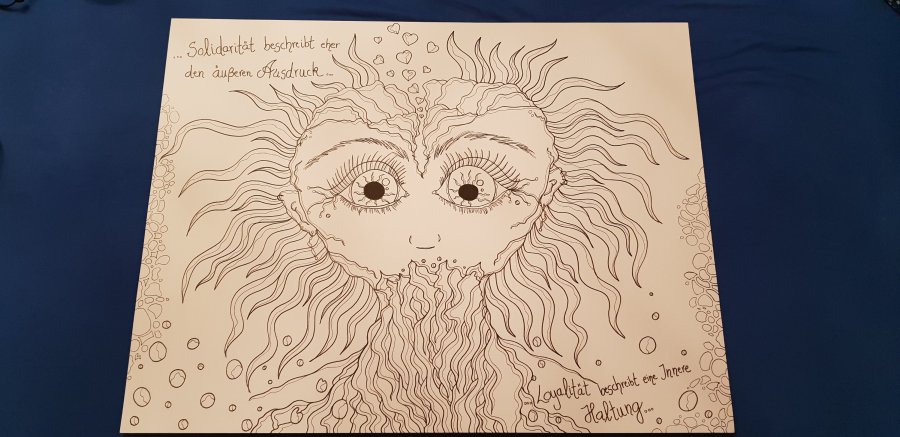 ... Solidarität beschreibt eher
den äußeren Ausdruck...
... Loyalität beschreibt eine Innere
Haltung...